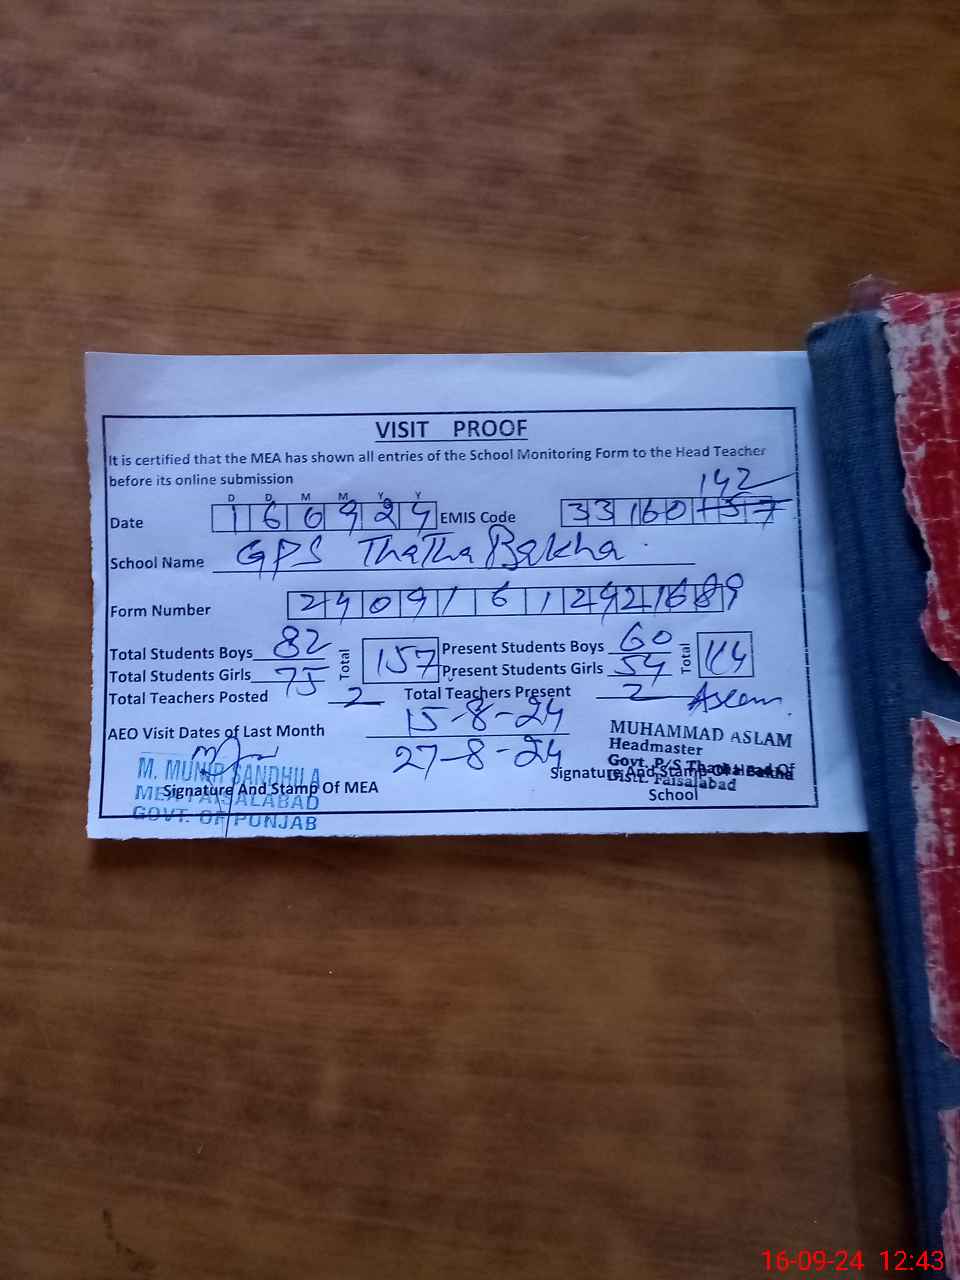 VISIT PROOF
It is certified that the MEA has shown all entries of the School Monitoring Form to the Head Teacher
before its online submission
142
D D M M Y Y
Date 160924 EMIS Code 33160157
School Name GPS ThaTha Bakha
Form Number 24091612421689
Total Students Boys 82 Total 157 Present Students Boys 60 Total 114
Total Students Girls 75 Present Students Girls 54
Total Teachers Posted 2 Total Teachers Present 2 Aslam
AEO Visit Dates of Last Month 15-8-24
27-8-24
MUHAMMAD ASLAM
Headmaster
Govt. P/S Thatha Bakha
Distt. Faisalabad
Signature And Stamp Of Head Of
School
M. MUNIR SANDHILA
MEA FAISALABAD
GOVT. OF PUNJAB
Signature And Stamp Of MEA
16-09-24 12:43